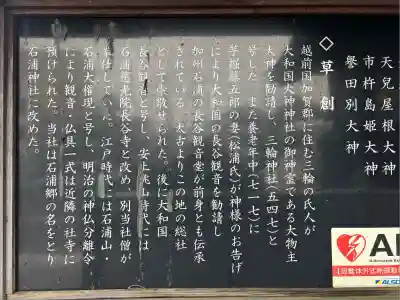 天兒屋根大神
市杵島姫大神
誉田別大神
◇草創
越前国加賀郡に住む三輪の氏人が
大和国大神神社の御神霊である大物主
大神を勧請し、三輪神社(五四七)と
号した。また養老年中(七一七)に
芋掘藤五郎の妻(松浦氏)が神様のお告げ
により大和国の長谷観音も勧請し
加州石浦の長谷観音堂が前身とも伝承
されている。太古よりこの地の総社
として崇敬せられた。後に大和国
長谷観音と号し、安土桃山時代には
石浦慈光院長谷寺と改め、別当社僧が
奉仕していた。江戸時代には石浦山・
石浦大権現と号し、明治の神仏分離令
により観音・仏具一式は近隣の社寺に
預けられた。当社は石浦郷の名をとり
石浦神社に改めた。
自動体外式除細動
ALSO